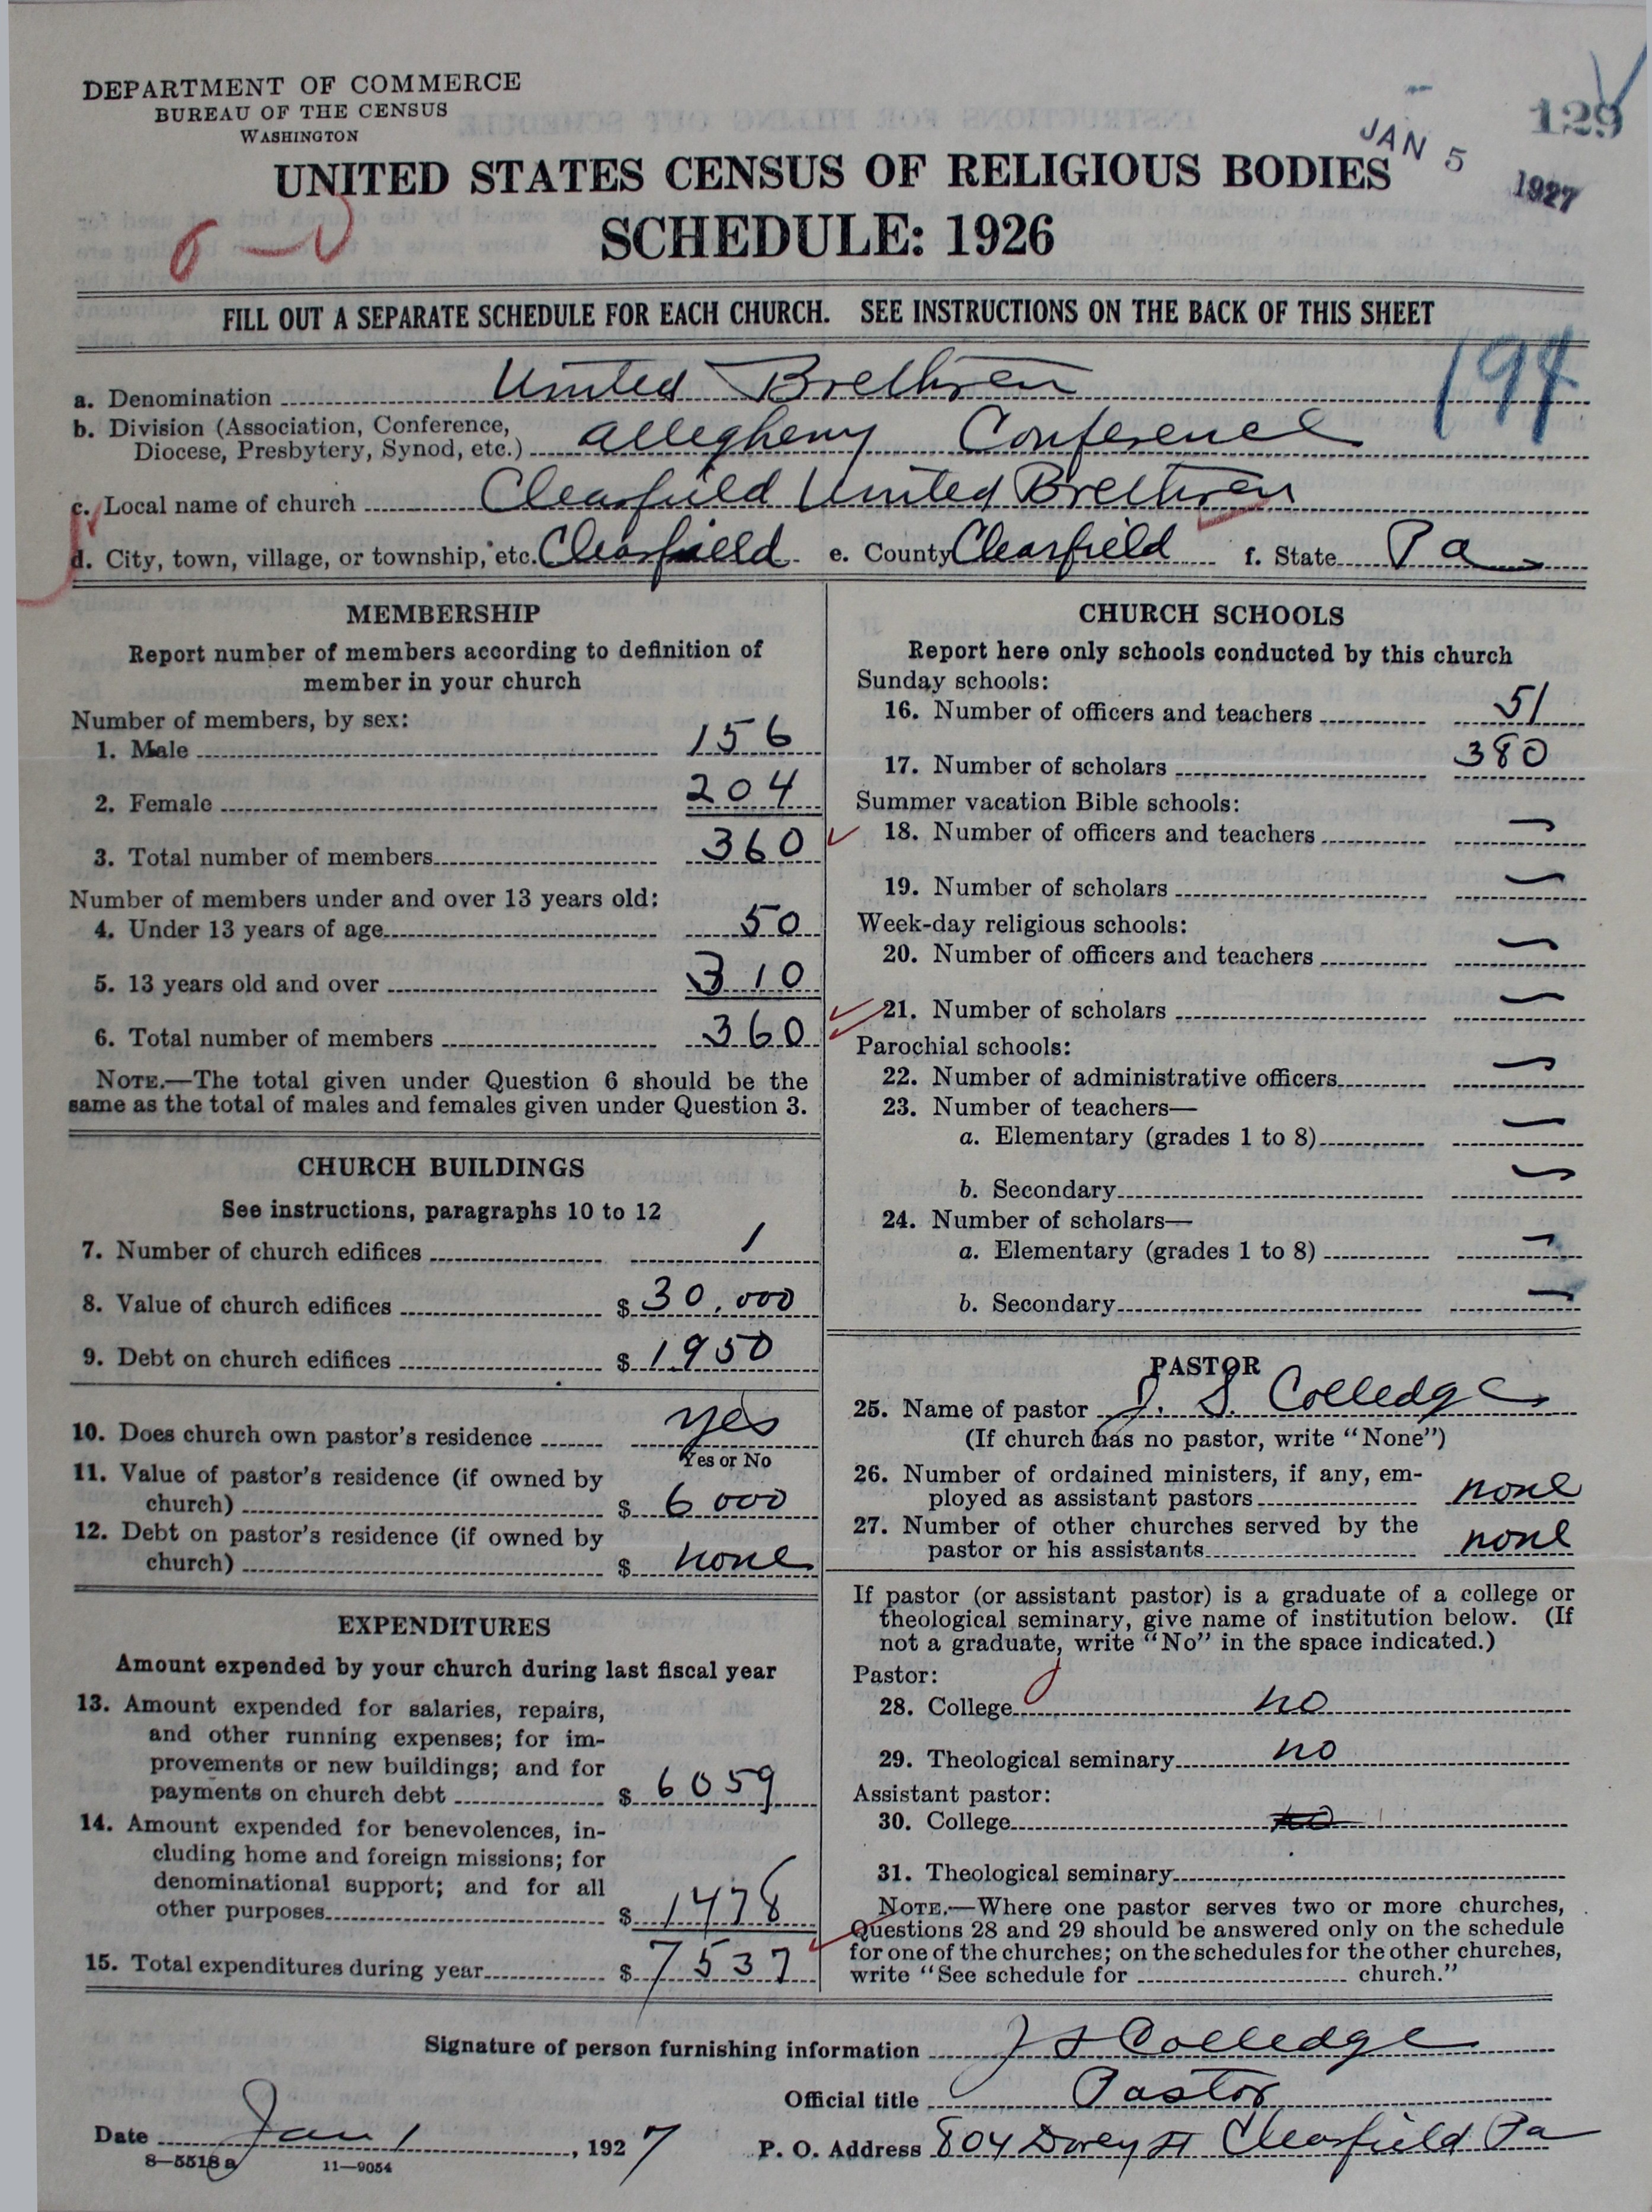 DEPARTMENT OF COMMERCE
BUREAU OF THE CENSUS
WASHINGTON
129
JAN 5 1927
UNITED STATES CENSUS OF RELIGIOUS BODIES
SCHEDULE: 1926
FILL OUT A SEPARATE SCHEDULE FOR EACH CHURCH. SEE INSTRUCTIONS ON THE BACK OF THIS SHEET
194
a. Denomination United Brethren
b. Division (Association, Conference,
Diocese, Presbytery, Synod, etc.) Allegheny Conference
c. Local name of church Clearfield United Brethren
d. City, town, village, or township, etc. Clearfield e. County Clearfield f. State Pa
MEMBERSHIP
Report number of members according to definition of
member in your church
Number of members, by sex:
1. Male 156
2. Female 204
3. Total number of members 360
Number of members under and over 13 years old:
4. Under 13 years of age 50
5. 13 years old and over 310
6. Total number of members 360
NOTE.—The total given under Question 6 should be the
same as the total of males and females given under Question 3.
CHURCH BUILDINGS
See instructions, paragraphs 10 to 12
7. Number of church edifices 1
8. Value of church edifices $ 30,000
9. Debt on church edifices $ 1950
10. Does church own pastor's residence yes
Yes or No
11. Value of pastor's residence (if owned by
church) $ 6000
12. Debt on pastor's residence (if owned by
church) $ none
EXPENDITURES
Amount expended by your church during last fiscal year
13. Amount expended for salaries, repairs,
and other running expenses; for im-
provements or new buildings; and for
payments on church debt $ 6059
14. Amount expended for benevolences, in-
cluding home and foreign missions; for
denominational support; and for all
other purposes $ 1478
15. Total expenditures during year $ 7537
CHURCH SCHOOLS
Report here only schools conducted by this church
Sunday schools:
16. Number of officers and teachers 51
17. Number of scholars 380
Summer vacation Bible schools:
18. Number of officers and teachers —
19. Number of scholars —
Week-day religious schools:
20. Number of officers and teachers —
21. Number of scholars —
Parochial schools:
22. Number of administrative officers —
23. Number of teachers—
a. Elementary (grades 1 to 8) —
b. Secondary —
24. Number of scholars—
a. Elementary (grades 1 to 8) —
b. Secondary —
PASTOR
25. Name of pastor J. S. Colledge
(If church has no pastor, write "None")
26. Number of ordained ministers, if any, em-
ployed as assistant pastors none
27. Number of other churches served by the
pastor or his assistants none
If pastor (or assistant pastor) is a graduate of a college or
theological seminary, give name of institution below. (If
not a graduate, write "No" in the space indicated.)
Pastor:
28. College no
29. Theological seminary no
Assistant pastor:
30. College no
31. Theological seminary
NOTE.—Where one pastor serves two or more churches,
Questions 28 and 29 should be answered only on the schedule
for one of the churches; on the schedules for the other churches,
write "See schedule for church."
Signature of person furnishing information J S Colledge
Official title Pastor
Date Jan 1, 1927 P. O. Address 804 Dorey St Clearfield Pa
8—5518 a 11—9054